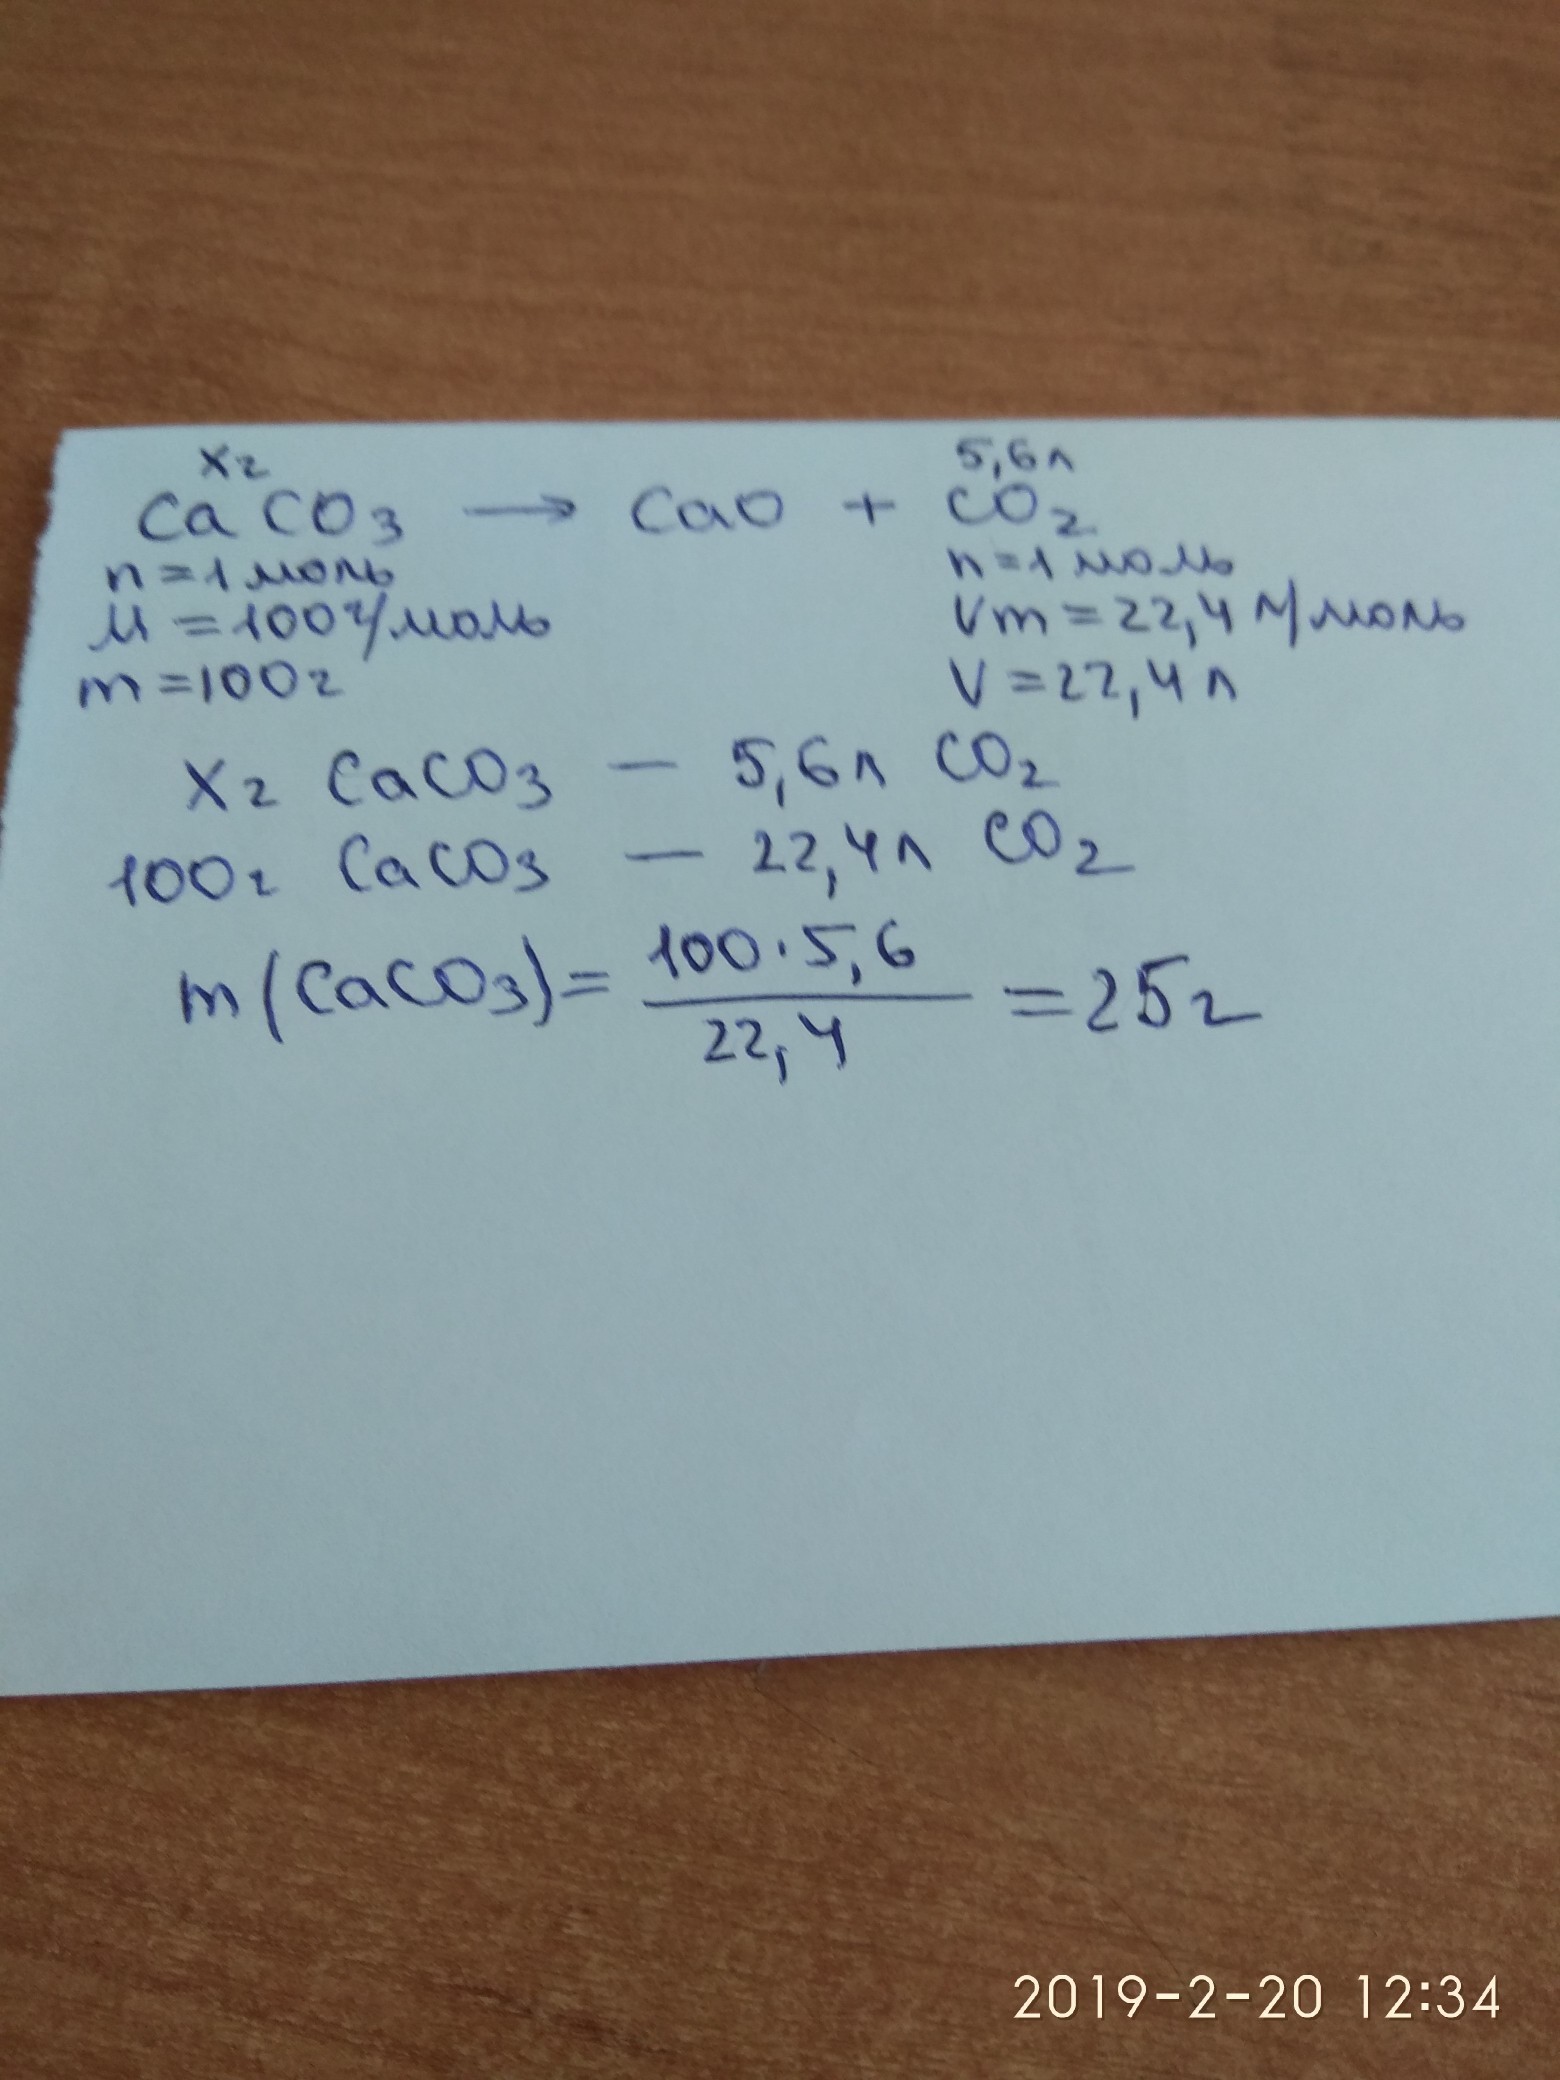 хг 5,6л
CaCO3 → CaO + CO2
n=1моль n=1моль
M=100г/моль Vm=22,4л/моль
m=100г V=22,4л
Xг CaCO3 — 5,6л CO2
100г CaCO3 — 22,4л CO2
m(CaCO3)= 100·5,6 / 22,4 =25г
2019-2-20 12:34